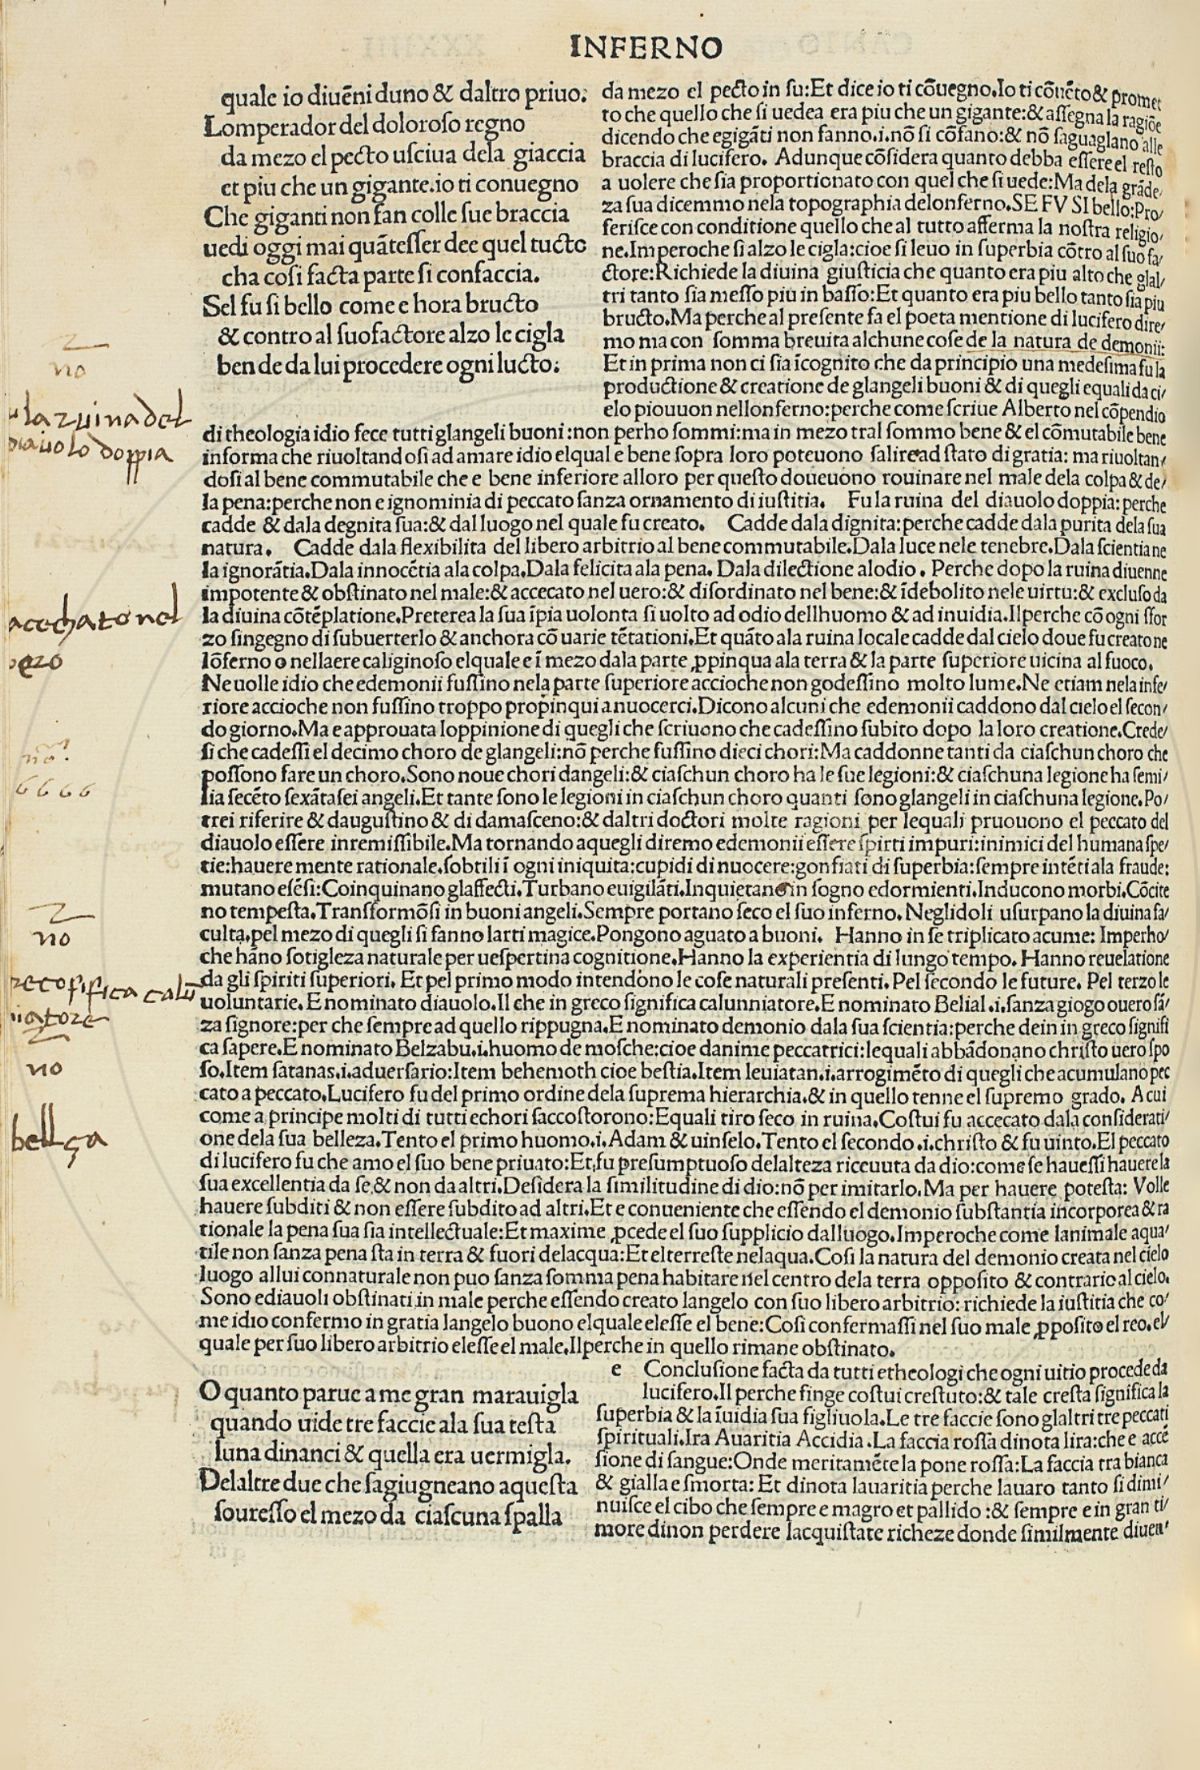 INFERNO
quale io diuēni duno & daltro priuo:
Lomperador del doloroso regno
da mezo el pecto usciua dela giaccia
et piu che un gigante.io ti conuegno
Che giganti non fan colle sue braccia
uedi oggi mai quātesser dee quel tucto
cha cosi facta parte si confaccia.
Sel fu si bello come e hora bructo
& contro al suofactore alzo le cigla
ben de da lui procedere ogni lucto:
da mezo el pecto in su:Et dice io ti cōuegno.Io ti cōuēto & promet
to che quello che si uedea era piu che un gigante:& assegna la ragiōe
dicendo che egigāti non fanno.i.nō si cōfano:& nō saguaglano alle
braccia di lucifero. Adunque cōsidera quanto debba essere el resto
a uolere che sia proportionato con quel che si uede:Ma dela grāde/
za sua dicemmo nela topographia delonferno.SE FV SI bello:Pro/
ferisce con conditione quello che al tutto afferma la nostra religio/
ne.Imperoche si alzo le cigla:cioe si leuo in superbia cōtro al suo fa/
ctore:Richiede la diuina giusticia che quanto era piu alto che glal/
tri tanto sia messo piu in basso:Et quanto era piu bello tanto sia piu
bructo.Ma perche al presente fa el poeta mentione di lucifero dire/
mo ma con somma breuita alchune cose de la natura de demonii:
Et in prima non ci sia īcognito che da principio una medesima fu la
productione & creatione de glangeli buoni & di quegli equali da ci/
elo piouuon nellonferno:perche come scriue Alberto nel cōpendio
di theologia idio fece tutti glangeli buoni:non perho sommi:ma in mezo tral sommo bene & el cōmutabile bene
informa che riuoltandosi ad amare idio elqual e bene sopra loro poteuono salire ad stato di gratia: ma riuoltan/
dosi al bene commutabile che e bene inferiore alloro per questo doueuono rouinare nel male dela colpa & de/
la pena:perche non e ignominia di peccato sanza ornamento di iustitia. Fu la ruina del diauolo doppia:perche
cadde & dala degnita sua:& dal luogo nel quale fu creato. Cadde dala dignita:perche cadde dala purita dela sua
natura. Cadde dala flexibilita del libero arbitrio al bene commutabile.Dala luce nele tenebre.Dala scientia ne
la ignorātia.Dala innocētia ala colpa.Dala felicita ala pena. Dala dilectione alodio. Perche dopo la ruina diuenne
impotente & obstinato nel male:& accecato nel uero:& disordinato nel bene:& īdebolito nele uirtu:& excluso da
la diuina cōtēplatione.Preterea la sua īpia uolonta si uolto ad odio dellhuomo & ad inuidia.Ilperche cō ogni sfor
zo singegno di subuerterlo & anchora cō uarie tētationi.Et quāto ala ruina locale cadde dal cielo doue fu creato ne
lōferno o nellaere caliginoso elquale e ī mezo dala parte ꝓpinqua ala terra & la parte superiore uicina al fuoco.
Ne uolle idio che edemonii fussino nela parte superiore accioche non godessino molto lume.Ne etiam nela infe/
riore accioche non fussino troppo propinqui a nuocerci.Dicono alcuni che edemonii caddono dal cielo el secon/
do giorno.Ma e approuata loppinione di quegli che scriuono che cadessino subito dopo la loro creatione.Crede/
si che cadessi el decimo choro de glangeli:nō perche fussino dieci chori:Ma caddonne tanti da ciaschun choro che
possono fare un choro.Sono noue chori dangeli:& ciaschun choro ha le sue legioni:& ciaschuna legione ha semi/
lia secēto sexātasei angeli.Et tante sono le legioni in ciaschun choro quanti sono glangeli in ciaschuna legione.Po/
trei riferire & daugustino & di damasceno:& daltri doctori molte ragioni per lequali pruouono el peccato del
diauolo essere inremissibile.Ma tornando aquegli diremo edemonii essere spirti impuri:inimici del humana spe/
tie:hauere mente rationale.sobtili ī ogni iniquita:cupidi di nuocere:gonfiati di superbia:sempre intēti ala fraude:
mutano esēsi:Coinquinano glaffecti.Turbano euigilāti.Inquietano in sogno edormienti.Inducono morbi.Cōcite
no tempesta.Transformōsi in buoni angeli.Sempre portano seco el suo inferno. Neglidoli usurpano la diuina fa/
culta.pel mezo di quegli si fanno larti magice.Pongono aguato a buoni. Hanno in se triplicato acume: Imperho/
che hāno sotigleza naturale per uespertina cognitione.Hanno la experientia di lungo tempo. Hanno reuelatione
da gli spiriti superiori. Et pel primo modo intendono le cose naturali presenti. Pel secondo le future. Pel terzo le
uoluntarie. E nominato diauolo. Il che in greco significa calunniatore.E nominato Belial .i.sanza giogo ouero sā/
za signore:per che sempre ad quello rippugna.E nominato demonio dala sua scientia:perche dein in greco signifi
ca sapere.E nominato Belzabu.i.huomo de mosche:cioe danime peccatrici:lequali abbādonano christo uero spo
so.Item satanas.i.aduersario:Item behemoth cioe bestia.Item leuiatan.i.arrogimēto di quegli che acumulano pec
cato a peccato.Lucifero fu del primo ordine dela suprema hierarchia.& in quello tenne el supremo grado. A cui
come a principe molti di tutti echori saccostorono:Equali tiro seco in ruina.Costui fu accecato dala considerati/
one dela sua belleza.Tento el primo huomo.i.Adam & uinselo.Tento el secondo .i.christo & fu uinto.El peccato
di lucifero fu che amo el suo bene priuato:Et fu presumptuoso delalteza riceuuta da dio:come se hauessi hauere la
sua excellentia da se & non da altri.Desidera la similitudine di dio:nō per imitarlo.Ma per hauere potesta: Volle
hauere subditi & non essere subdito ad altri.Et e conueniente che essendo el demonio substantia incorporea & ra
tionale la pena sua sia intellectuale:Et maxime ꝓcede el suo supplicio dalluogo.Imperoche come lanimale aqua/
tile non sanza pena sta in terra & fuori delacqua:Et el terreste nelaqua.Cosi la natura del demonio creata nel cielo
luogo allui connaturale non puo sanza somma pena habitare nel centro dela terra opposito & contrario al cielo.
Sono ediauoli obstinati in male perche essendo creato langelo con suo libero arbitrio: richiede la iustitia che co/
me idio confermo in gratia langelo buono elquale elesse el bene:Cosi confermassi nel suo male ꝓposito el reo.el/
quale per suo libero arbitrio elesse el male.Ilperche in quello rimane obstinato.
O quanto parue a me gran marauigla
quando uide tre faccie ala sua testa
luna dinanci & quella era uermigla.
Delaltre due che sagiugneano aquesta
souresso el mezo da ciascuna spalla
e Conclusione facta da tutti etheologi che ogni uitio procede da
lucifero.Il perche finge costui crestuto:& tale cresta significa la
superbia & la īuidia sua figliuola.Le tre faccie sono glaltri tre peccati
spirituali.Ira Auaritia Accidia.La faccia rossa dinota lira:che e accē
sione di sangue:Onde meritamēte la pone rossa:La faccia tra bianca
& gialla e smorta: Et dinota lauaritia perche lauaro tanto si dimi/
nuisce el cibo che sempre e magro et pallido :& sempre e in gran ti/
more dinon perdere lacquistate richeze donde similmente diuen/
no
la ruina del
diauolo doppia
acechato nel
no.
6666
no
calū
niatore
no
bellça